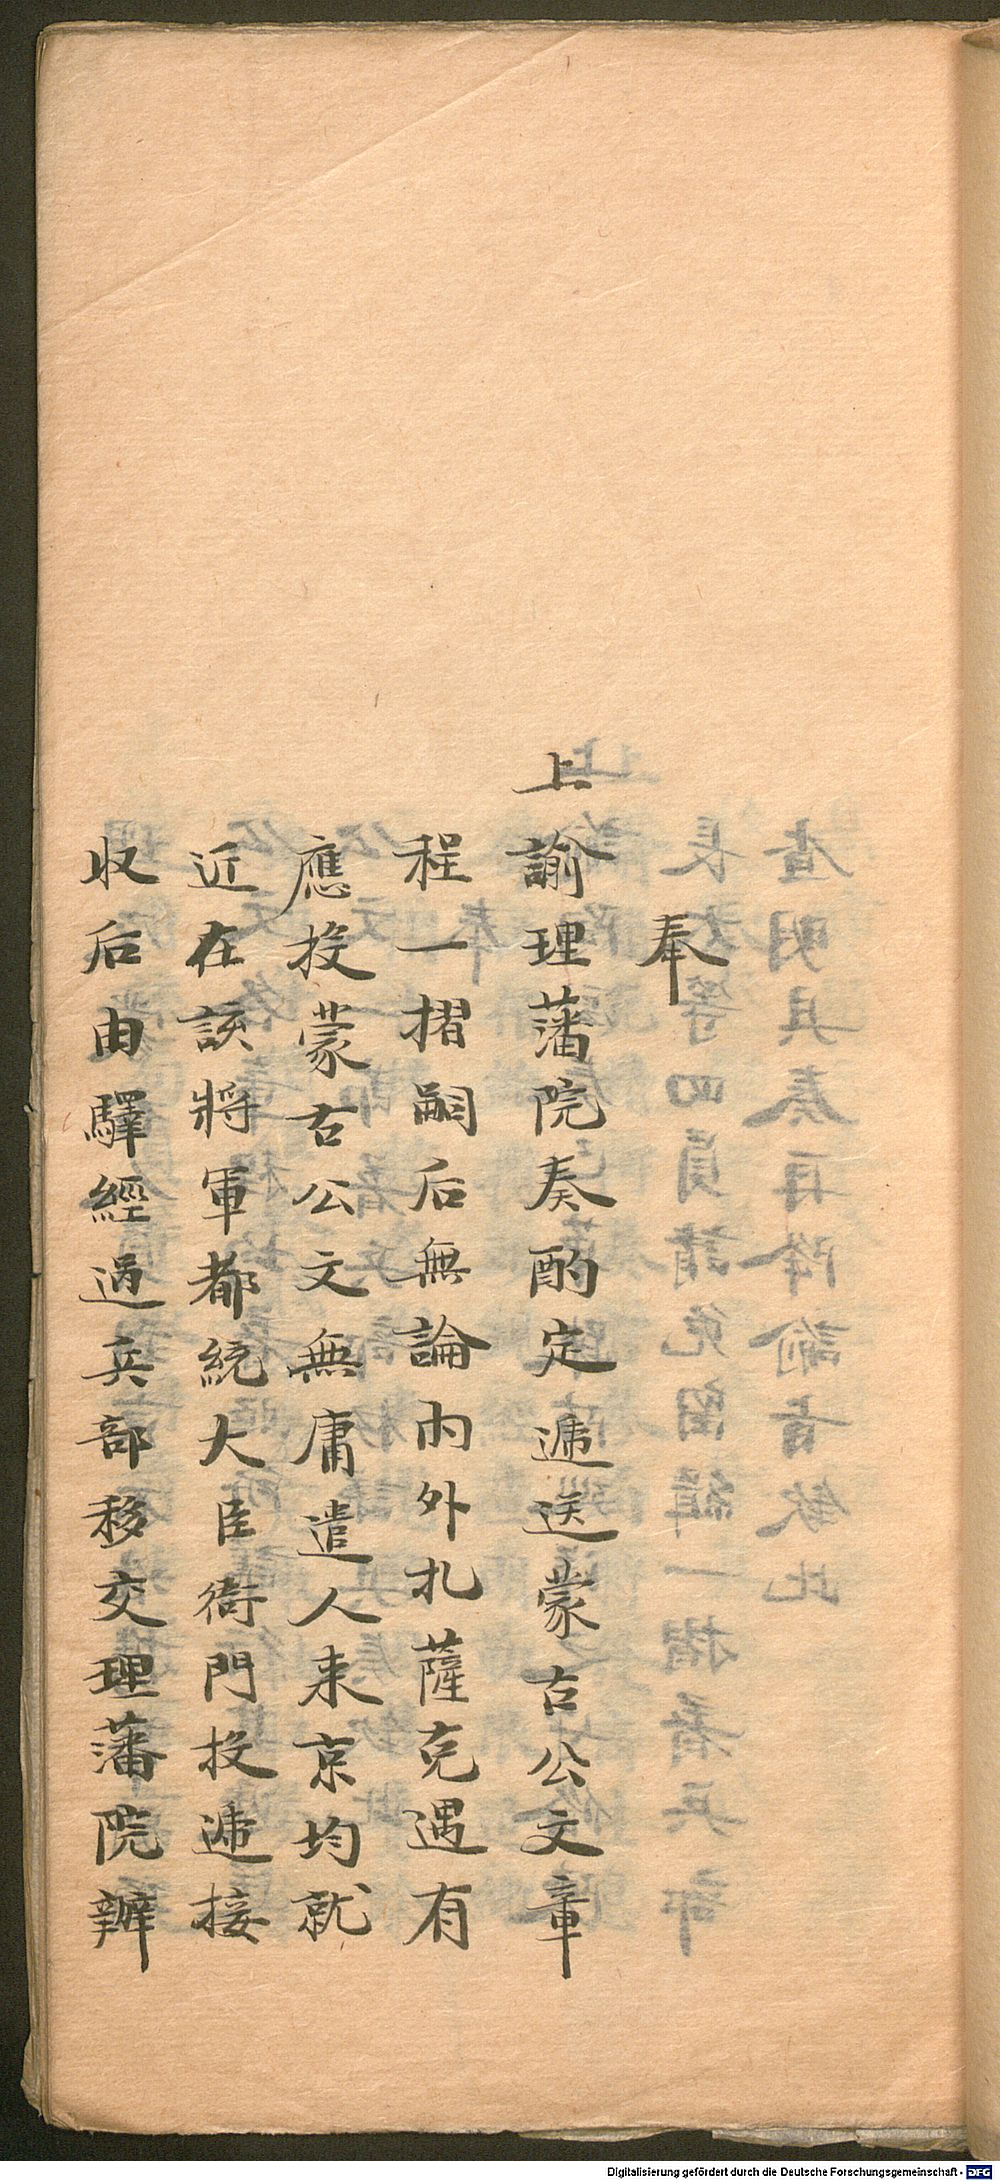 奉
上諭理藩院奏酌定遞送蒙古公文章
程一摺嗣后無論內外扎薩克遇有
應投蒙古公文無庸遣人来京均就
近在該將軍都統大臣衙門投遞接
收后由驛經過兵部移交理藩院辦
Digitalisierung gefördert durch die Deutsche Forschungsgemeinschaft - DFG